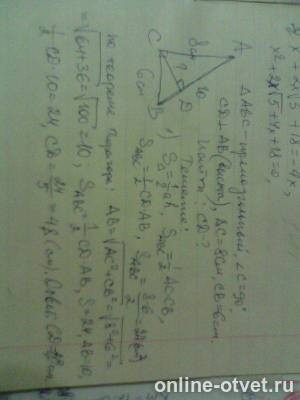 x + 2x√5 + 18 = -4x,
x² + 2x√5 + 4x + 18 = 0,
A
8см
10
C
?
D
6см
B
ΔABC - прямоугольный, ∠C = 90°
CD⊥AB (высота), AC = 8см, CB = 6см
Найти: CD - ?
Решение:
1) S△ = ½ ah, S△ABC = ½ AC·CB,
SABC = ½ CD·AB, SABC = 8·6/2 = 24 (см²)
по теореме Пифагора: AB = √AC² + CB² = √8² + 6² =
= √64 + 36 = √100 = 10, SABC = ½ CD·AB, S = 24, AB = 10,
½ CD·10 = 24, CD = 24/5 = 4,8 (см). Ответ: CD = 4,8 см
online-otvet.ru